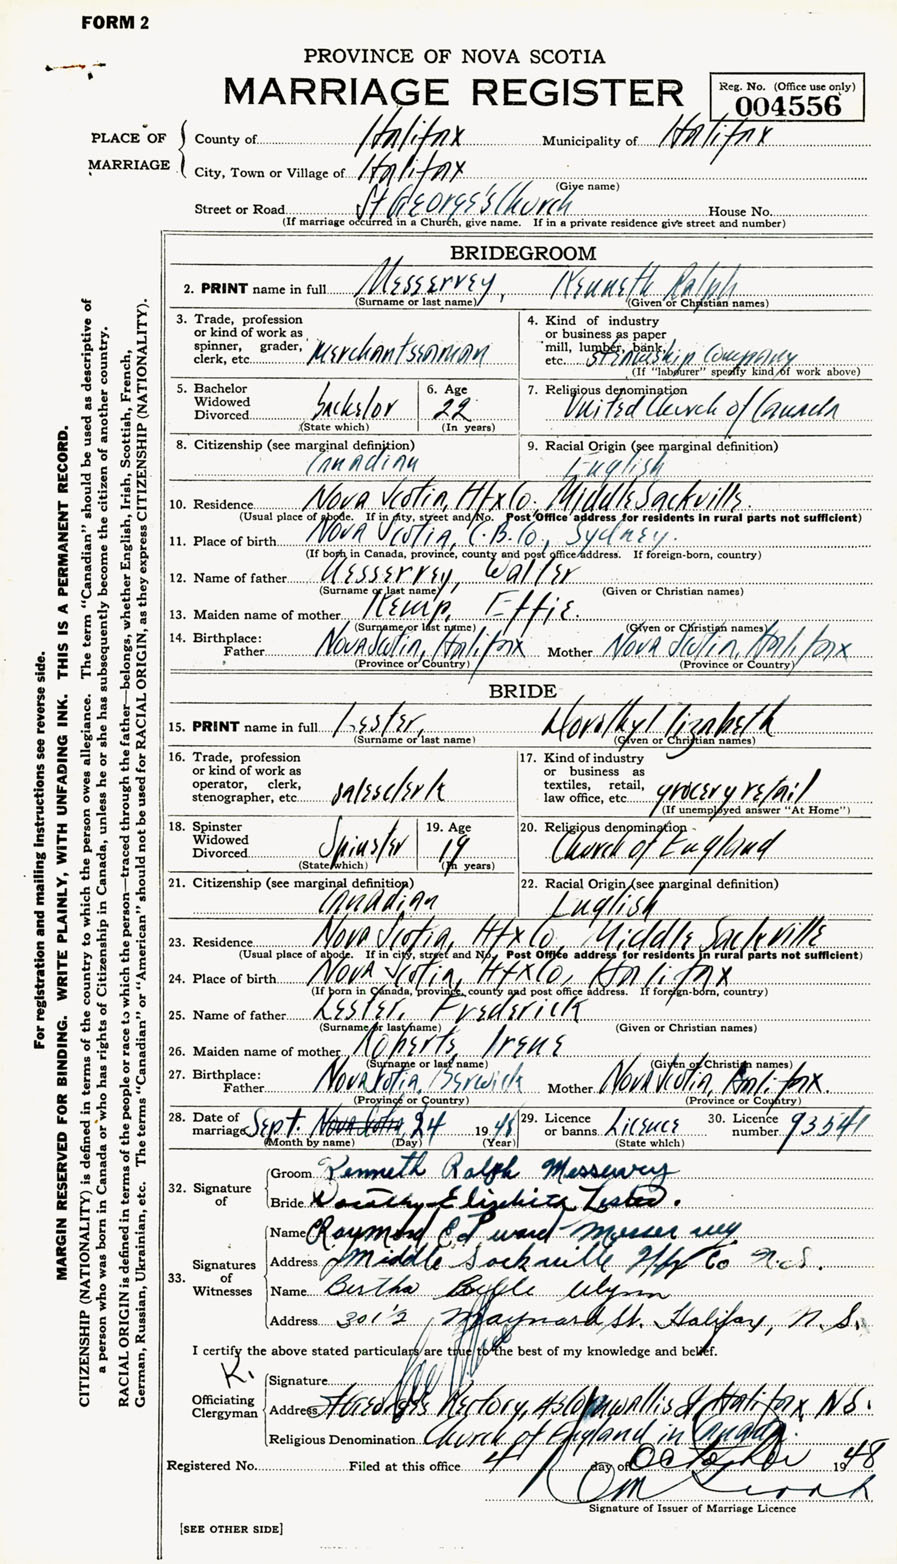 FORM 2
PROVINCE OF NOVA SCOTIA
MARRIAGE REGISTER
Reg. No. (Office use only)
004556
PLACE OF MARRIAGE
County of Halifax Municipality of Halifax
City, Town or Village of Halifax
(Give name)
Street or Road St George's Church House No.
(If marriage occurred in a Church, give name. If in a private residence give street and number)
BRIDEGROOM
2. PRINT name in full Messervey, Kenneth Ralph
(Surname or last name) (Given or Christian names)
3. Trade, profession or kind of work as spinner, grader, clerk, etc. Merchant seaman
4. Kind of industry or business as paper mill, lumber, bank, etc. Steamship Company
(If "labourer" specify kind of work above)
5. Bachelor Widowed Divorced bachelor
(State which)
6. Age 22
(In years)
7. Religious denomination United Church of Canada
8. Citizenship (see marginal definition) Canadian
9. Racial Origin (see marginal definition) English
10. Residence Nova Scotia, Hfx Co. Middle Sackville
(Usual place of abode. If in city, street and No. Post Office address for residents in rural parts not sufficient)
11. Place of birth Nova Scotia, C.B. Co, Sydney.
(If born in Canada, province, county and post office address. If foreign-born, country)
12. Name of father Messervey, Walter
(Surname or last name) (Given or Christian names)
13. Maiden name of mother Kemp, Effie.
(Surname or last name) (Given or Christian names)
14. Birthplace: Father Nova Scotia, Halifax Mother Nova Scotia, Halifax
(Province or Country) (Province or Country)
BRIDE
15. PRINT name in full Lester, Dorothy Elizabeth
(Surname or last name) (Given or Christian names)
16. Trade, profession or kind of work as operator, clerk, stenographer, etc. salesclerk
17. Kind of industry or business as textiles, retail, law office, etc. grocery retail
(If unemployed answer "At Home")
18. Spinster Widowed Divorced Spinster
(State which)
19. Age 19
(In years)
20. Religious denomination Church of England
21. Citizenship (see marginal definition) Canadian
22. Racial Origin (see marginal definition) English
23. Residence Nova Scotia, Hfx Co, Middle Sackville
(Usual place of abode. If in city, street and No. Post Office address for residents in rural parts not sufficient)
24. Place of birth Nova Scotia, Hfx Co, Halifax
(If born in Canada, province, county and post office address. If foreign-born, country)
25. Name of father Lester, Frederick
(Surname or last name) (Given or Christian names)
26. Maiden name of mother Roberts Irene
(Surname or last name) (Given or Christian names)
27. Birthplace: Father Nova Scotia, Berwick Mother Nova Scotia, Halifax.
(Province or Country) (Province or Country)
28. Date of marriage Sept. Nova Scotia 24 1948
(Month by name) (Day) (Year)
29. Licence or banns Licence
(State which)
30. Licence number 93541
32. Signature of
Groom Kenneth Ralph Messervey
Bride Dorothy Elizabeth Lester.
33. Signatures of Witnesses
Name Raymond Edward Messervey
Address Middle Sackville Hfx Co N.S.
Name Bertha Belle
Address 301½ Maynard St. Halifax, N.S.
I certify the above stated particulars are true to the best of my knowledge and belief.
K.
Officiating Clergyman
Signature
Address St George's Rectory, Cornwallis St Halifax, N.S.
Religious Denomination Church of England in Canada.
Registered No. Filed at this office 4 day of October 1948
Signature of Issuer of Marriage Licence
[SEE OTHER SIDE]
For registration and mailing instructions see reverse side.
MARGIN RESERVED FOR BINDING. WRITE PLAINLY, WITH UNFADING INK. THIS IS A PERMANENT RECORD.
CITIZENSHIP (NATIONALITY) is defined in terms of the country to which the person owes allegiance. The term "Canadian" should be used as descriptive of
a person who was born in Canada or who has rights of Citizenship in Canada, unless he or she has subsequently become the citizen of another country.
RACIAL ORIGIN is defined in terms of the people or race to which the person—traced through the father—belongs, whether English, Irish, Scottish, French,
German, Russian, Ukrainian, etc. The terms "Canadian" or "American" should not be used for RACIAL ORIGIN, as they express CITIZENSHIP (NATIONALITY).